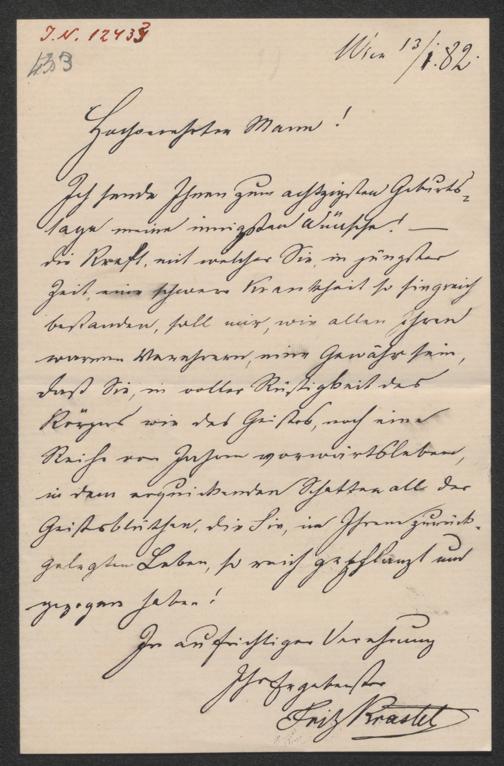 I.N. 12433
433
Wien 13/1.82.
Hochverehrter Mann!
Ich sende Ihnen zum achtzigsten Geburts-
tage meine innigsten Wünsche! —
die Kraft, mit welcher Sie, in jüngster
Zeit, eine schwere Krankheit so siegreich
bestanden, soll mir, wie allen Ihren
warmen Verehrern, eine Gewähr sein,
daß Sie, in voller Rüstigkeit des
Körpers wie des Geistes, noch eine
Reihe von Jahren vorwärtsleben,
in dem erquickenden Schatten all der
Geistesblüthen, die Sie, in Ihrem zurück-
gelegten Leben, so reich gepflanzt und
gezogen haben!
In aufrichtiger Verehrung
Ihr Ergebenster
Fritz Krastel